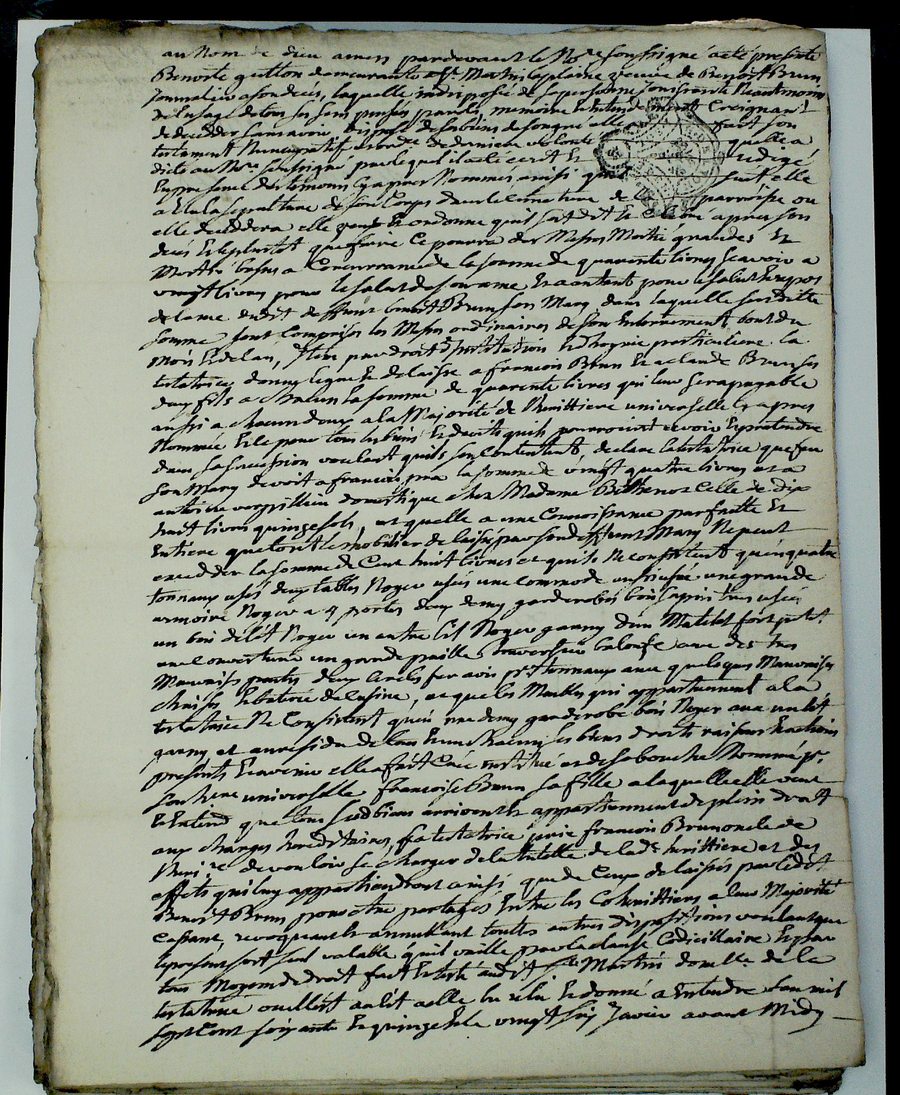 au Nom de dieu amen pardevant le No.re soussigné a été presente
Benoite guitton demeurante a St. Martin la plaine veuve de Benoit Brun
Journalier laquelle indisposée de sa personne
de l'usage de tous ses sens parole, memoire et entendement Craignant
de decedder sans avoir disposé de ses biens de son gré elle a fait son
testament Nuncupatif et ordce. de derniere volonté quelle a
dicté au No.re soussigné par lequel il a été ecrit et redigé
En presence des temoins Cy apres Nommés ainsi que suit elle
a Elu la sepulture de son Corps dans le cimetiere de la parroisse ou
elle deceddera elle veut et ordonne qu'il soit dit et Celebré apres son
decés Et le plustot que faire Ce pourra des Messes Mortre grandes Et
Mortre basses a Concurrance de la somme de quarente livres scavoir a
vingt livres pour le salut de son ame Et autant pour le salut Et repos
de l'ame dudit deffunt benoit Brun son Mary dans laquelle susditte
somme sont Comprises les Messes ordinaires de son Enterrement bout du
Mois Et de l'an, Item par droit d'institution Et hoyrie particuliere la
testatrice donne legue Et delaisse a francois Brun Et a claude Brun ses
deux fils a chacun la somme de quarente livres qui leur sera payable
aussi a chacun d'eux a la Majorité de l'heritiere universelle Cy apres
Nommée Et ce pour tous les biens Et droits quils pourroient avoir Et pretendre
dans sa succession voulant quils s'en Contentent, declare la testatrice que feu
son Mary devoit a francois la somme de vingt quatre livres et a
antoine domestique chez Madame Celle de dix
huit livres quinze sols, et quelle a une Connoissance parfaitte Et
Entiere que tout le Mobilier delaissé par son deffunt Mary Ne peut
excedder la somme de Cent huit livres et qu'il Ne Consistent qu'en quatre
tonnaux usés deux tables Noyer usés une commode une grande
armoire Noyer a 4 portes deux demy garderobes bois sapin tres usés
un bois de lit Noyer un autre lit Noyer garny d'un Matelat fort petit
une Couverture un garde paille traversier balouffe avec des tres
Mauvais deux fer trois pts. tonnaux avec quelques Mauvaises
chaises et que les Meubles qui appartiennent a la
testatrice Ne Consistent qu'en une demy garderobe bois Noyer avec un lit
garny et au residu de tous Et un chacuns ses biens droits raisons Et actions
presents Et avenir elle a fait Créé institué et de sa bouche Nommé pr.
son here universelle francoise Brun sa fille a laquelle elle veut
Et Entend que tous susd biens arrivent Et appartiennent de plein droit
aux charges hereditaires, la testatrice prie francois Brun oncle de
l'heri.re de vouloir se charger de la tutelle de lad. heritiere et des
effets qui luy appartiendront ainsi que de Ceux delaissés par ledit
Benoit Brun pour etre partagés Entre les Coheritiers a leur Majorité
Cassant, revoquant Et annullant touttes autres dispositions voulant que
le present sort seul valable qu'il vaille par la clause Codicillaire Et par
tous Moyens de droit fait Et leüe audit St. Martin de la
testatrice ou est au lit a elle lu relu Et donné a Entendre l'an mil
sept Cent soixante Et quinze Et le vingt six Janvier avant Midy